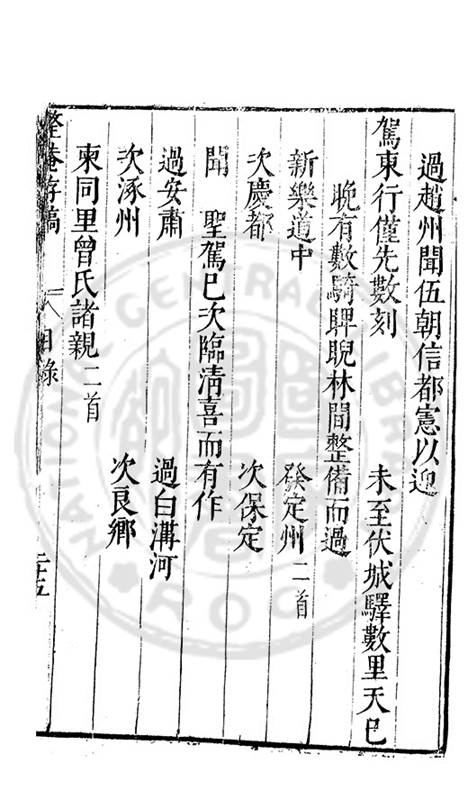 過趙州聞伍朝信都憲以迎
駕東行僅先數刻 未至伏城驛數里天已
晚有數騎睥睨林間整備而過
新樂道中 發定州二首
次慶都 次保定
聞 聖駕已次臨清喜而有作
過安肅 過白溝河
次涿州 次良鄉
柬同里曾氏諸親二首
整菴存稿 目錄 二十五
NATIONAL CENTRAL LIBRARY
ROC